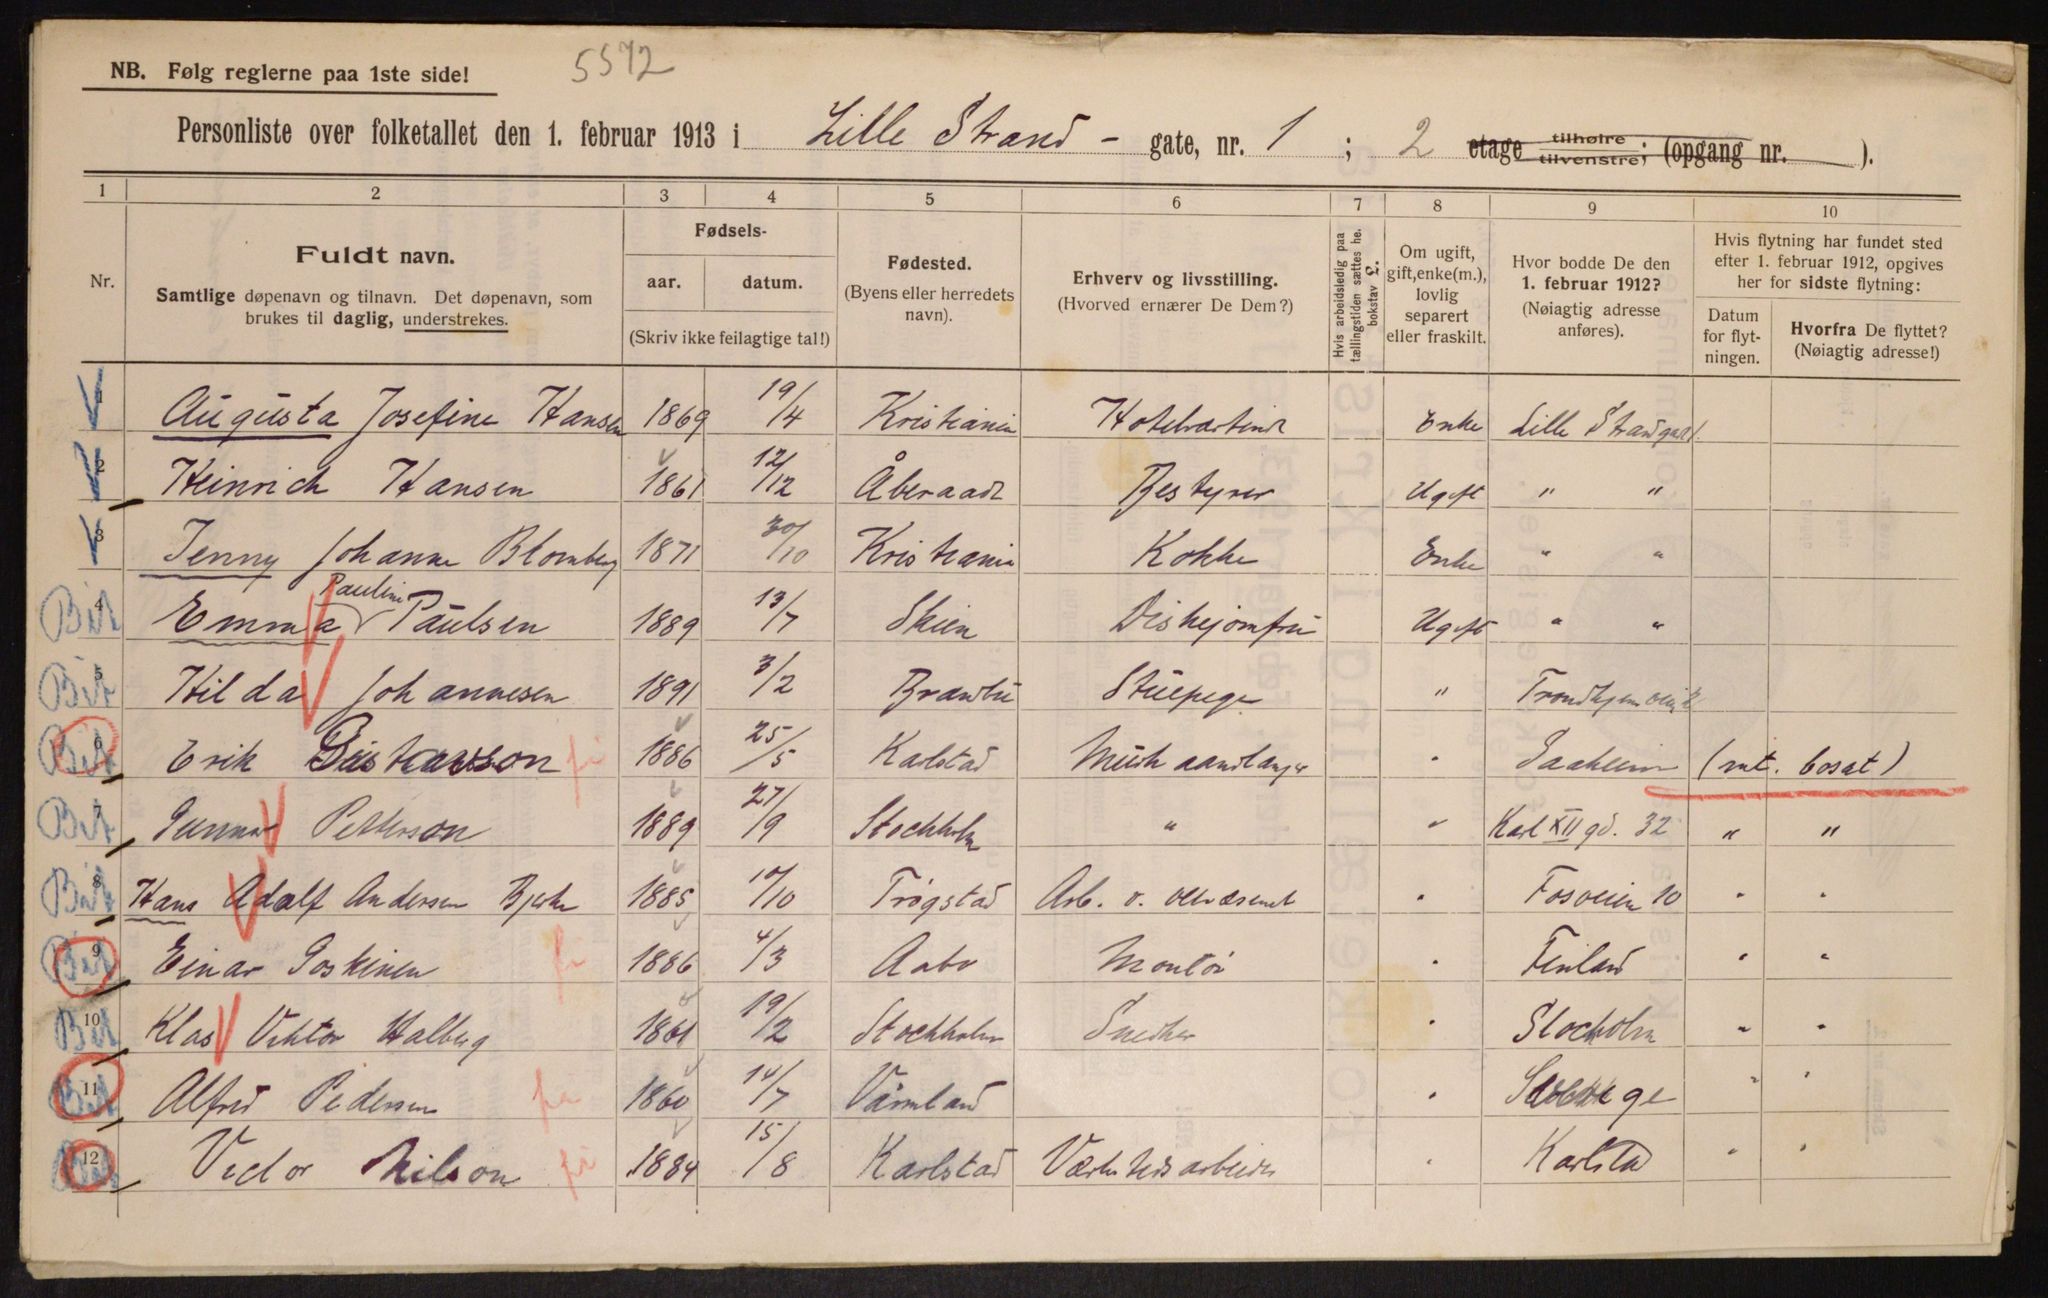 5572
NB. Følg reglerne paa 1ste side!
Personliste over folketallet den 1. februar 1913 i Lille Strand - gate, nr. 1 ; 2 etage tilhøire tilvenstre; (opgang nr. ).
1 2 3 4 5 6 7 8 9 10
Nr.
Fuldt navn.
Samtlige døpenavn og tilnavn. Det døpenavn, som
brukes til daglig, understrekes.
Fødsels-
aar. datum.
(Skriv ikke feilagtige tal!)
Fødested.
(Byens eller herredets
navn).
Erhverv og livsstilling.
(Hvorved ernærer De Dem?)
Hvis arbeidsledig paa
tællingstiden sættes he.
bokstav L.
Om ugift,
gift, enke(m.),
lovlig
separert
eller fraskilt.
Hvor bodde De den
1. februar 1912?
(Nøiagtig adresse
anføres).
Hvis flytning har fundet sted
efter 1. februar 1912, opgives
her for sidste flytning:
Datum
for flyt-
ningen.
Hvorfra De flyttet?
(Nøiagtig adresse!)
1 Augusta Josefine Hansen 1869 19/4 Kristiania Hotelværtinde Enke Lille Strandgad 1.
2 Heinrich Hansen 1861 12/12 Åberaade Bestyrer Ugift " "
3 Jenny Johanne Blomberg 1871 30/10 Kristiania Kokke Enke " "
Bit 4 Emma Pauline Paulsen 1889 13/7 Skien Diskejomfru Ugift " "
Bit 5 Hilda Johannesen 1891 3/2 Brandbu Stuepige " Trondhjemsveien
Bit 6 Erik Gustavsson fr 1886 25/5 Karlstad Mursk aandlanger " Saaheim (mt. bosat)
Bit 7 Gunnar Petterson 1889 27/9 Stockholm " " Karl XII gd. 32 " "
Bit 8 Hans Adolf Andersen Bjerke 1885 10/10 Trøgstad Arb. v. veivæsenet " Fosveien 10 " "
Bit 9 Einar Koskinen fr 1886 4/3 Aabo Montør " Finland " "
Bit 10 Klas Viktor Halberg 1861 19/2 Stockholm Snedker " Stockholm " "
Bit 11 Alfred Pedersen fr 1860 14/7 Värmland " Sverige " "
Bit 12 Victor Nilson fr 1884 15/8 Karlstad Værkstedsarbeider " Karlstad " "